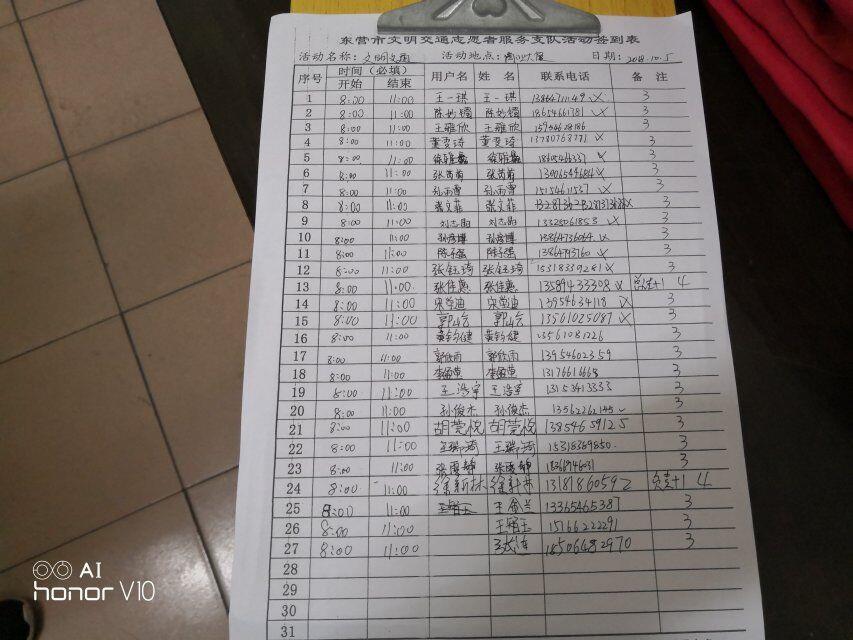 东营市文明交通志愿者服务支队活动签到表
活动名称：文明交通 活动地点： 日期：2018.10.5
序号 时间（必填） 用户名 姓 名 联系电话 备 注
开始 结束
1 8:00 11:00 王一琪 王一琪 13864711149 3
2 8:00 11:00 陈妙嬑 陈妙嬑 18654661781 3
3 8:00 11:00 王雅欣 王雅欣 3
4 8:00 11:00 董雯琦 董雯琦 13780768771 3
5 8:00 11:00 3
6 8:00 11:00 张茜菊 张茜菊 3
7 8:00 11:00 孙雨雪 孙雨雪 15154611537 3
8 8:00 11:00 张文菲 张文菲 3
9 8:00 11:00 刘志勋 刘志勋 13325061853 3
10 8:00 11:00 孙彦博 孙彦博 13864736064 3
11 8:00 11:00 陈子强 陈子强 13864793760 3
12 8:00 11:00 张钰琦 张钰琦 15318339281 3
13 8:00 11:00 张佳惠 张佳惠 13589433308 负责+1 4
14 8:00 11:00 宋莹迪 宋莹迪 13954634118 3
15 8:00 11:00 郭晗 郭晗 13561025087 3
16 8:00 11:00 黄钧健 黄钧健 13561081226 3
17 8:00 11:00 郭欣雨 郭欣雨 13954602359 3
18 8:00 11:00 13176616668 3
19 8:00 11:00 王浩宇 王浩宇 13153413333 3
20 8:00 11:00 孙俊杰 孙俊杰 13562262145 3
21 8:00 11:00 胡莞悦 胡莞悦 13854659125 3
22 8:00 11:00 王瑞琦 王瑞琦 15318369850 3
23 8:00 11:00 3
24 8:00 11:00 徐新林 徐新林 13181860592 负责+1 4
25 8:00 11:00 王智玉 王金兰 13365465387 3
26 8:00 11:00 王智玉 15166222291 3
27 8:00 11:00 张连 18506482970 3
28
29
30
31
AI
honor V10